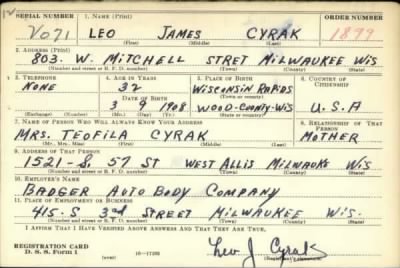 SERIAL NUMBER 1. NAME (Print) ORDER NUMBER
V071 LEO JAMES CYRAK 1877
(First) (Middle) (Last)
2. ADDRESS (Print)
803. W. MITCHELL STRET MILWAUKEE WIS
(Number and street or R. F. D. number) (Town) (County) (State)
3. TELEPHONE 4. AGE IN YEARS 5. PLACE OF BIRTH 6. COUNTRY OF CITIZENSHIP
NONE 32 WISCONSIN RAPIDS
DATE OF BIRTH (Town or county)
3 9 1908 WOOD-COUNTY-WIS U.S.A
(Exchange) (Number) (Mo.) (Day) (Yr.) (State or country)
7. NAME OF PERSON WHO WILL ALWAYS KNOW YOUR ADDRESS 8. RELATIONSHIP OF THAT PERSON
MRS. TEOFILA CYRAK MOTHER
(Mr., Mrs., Miss) (First) (Middle) (Last)
9. ADDRESS OF THAT PERSON
1521-S 57 ST WEST ALLIS MILWAUKE WIS
(Number and street or R. F. D. number) (Town) (County) (State)
10. EMPLOYER'S NAME
BADGER AUTO BODY COMPANY
11. PLACE OF EMPLOYMENT OR BUSINESS
415-S 3rd STREET MILWAUKEE WIS.
(Number and street or R. F. D. number) (Town) (County) (State)
I AFFIRM THAT I HAVE VERIFIED ABOVE ANSWERS AND THAT THEY ARE TRUE.
REGISTRATION CARD
D. S. S. Form 1 Leo J Cyrak